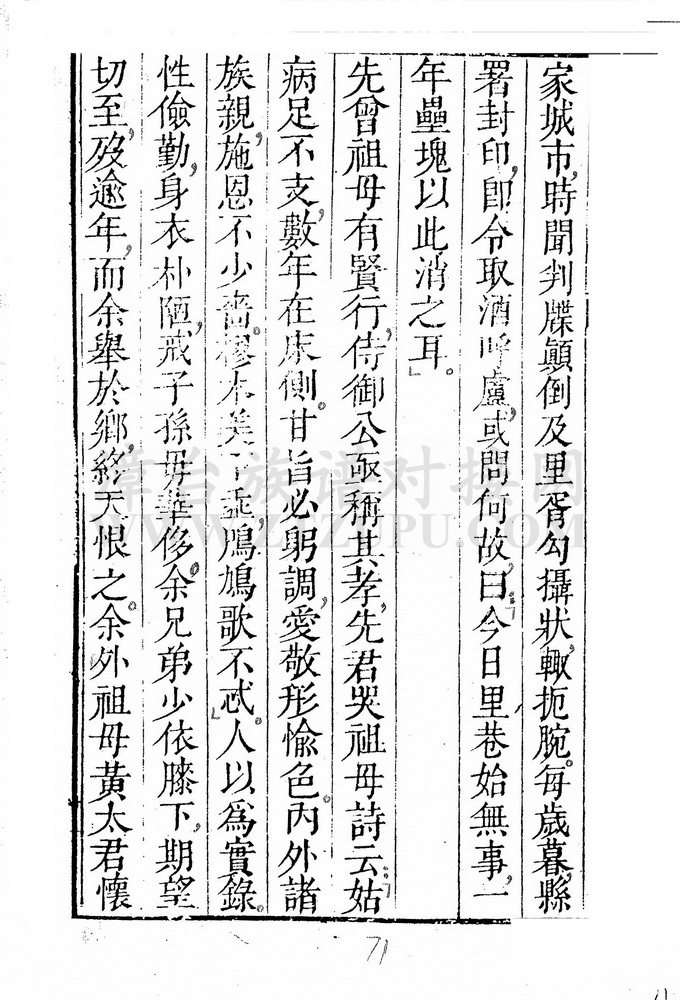 家城市，時聞判牒顚倒及里胥勾攝狀，輙扼腕。每歲暮，縣
署封印，即令取酒呼盧，或問何故，曰：「今日里巷始無事，一
年壘塊以此消之耳」。
先曾祖母有賢行，侍御公亟稱其孝，先君哭祖母詩云：「姑
病足不支，數年在床側。甘旨必躬調，愛敬彤愉色。內外諸
族親，施恩不少嗇。樛木美下垂，鳲鳩歌不忒」。人以為實錄。
性儉勤，身衣朴陋，戒子孫毋華侈。余兄弟少依膝下，期望
切至，歿逾年，而余舉於鄉，終天恨之。余外祖母黃太君懷
71
WWW.ZTZUPU.COM
族谱对接网